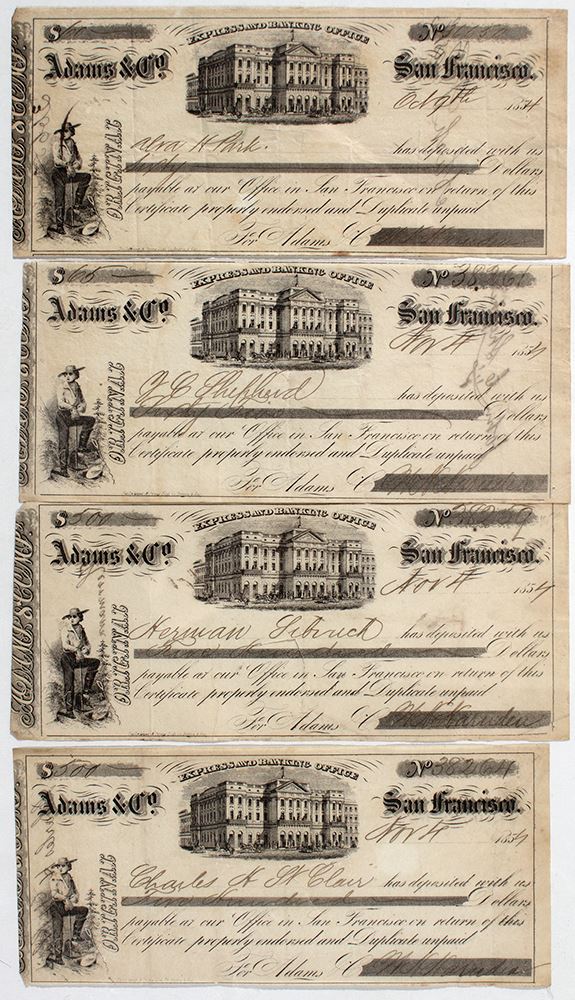 EXPRESS AND BANKING OFFICE
Adams & Co. San Francisco.
1854
ORIGINAL
Alva H Park.
has deposited with us
Dollars
payable at our Office in San Francisco on return of this
Certificate properly endorsed and Duplicate unpaid
For Adams & Co
$65 No 38261
EXPRESS AND BANKING OFFICE
Adams & Co. San Francisco.
Nov 4 1854
ORIGINAL
Shepherd
has deposited with us
Dollars
payable at our Office in San Francisco on return of this
Certificate properly endorsed and Duplicate unpaid
For Adams & Co
$500 No 38259
EXPRESS AND BANKING OFFICE
Adams & Co. San Francisco.
Nov 4 1854
ORIGINAL
Herman
has deposited with us
Dollars
payable at our Office in San Francisco on return of this
Certificate properly endorsed and Duplicate unpaid
For Adams & Co
$500 No 38264
EXPRESS AND BANKING OFFICE
Adams & Co. San Francisco.
Nov 4 1854
ORIGINAL
Charles A St Clair has deposited with us
Dollars
payable at our Office in San Francisco on return of this
Certificate properly endorsed and Duplicate unpaid
For Adams & Co